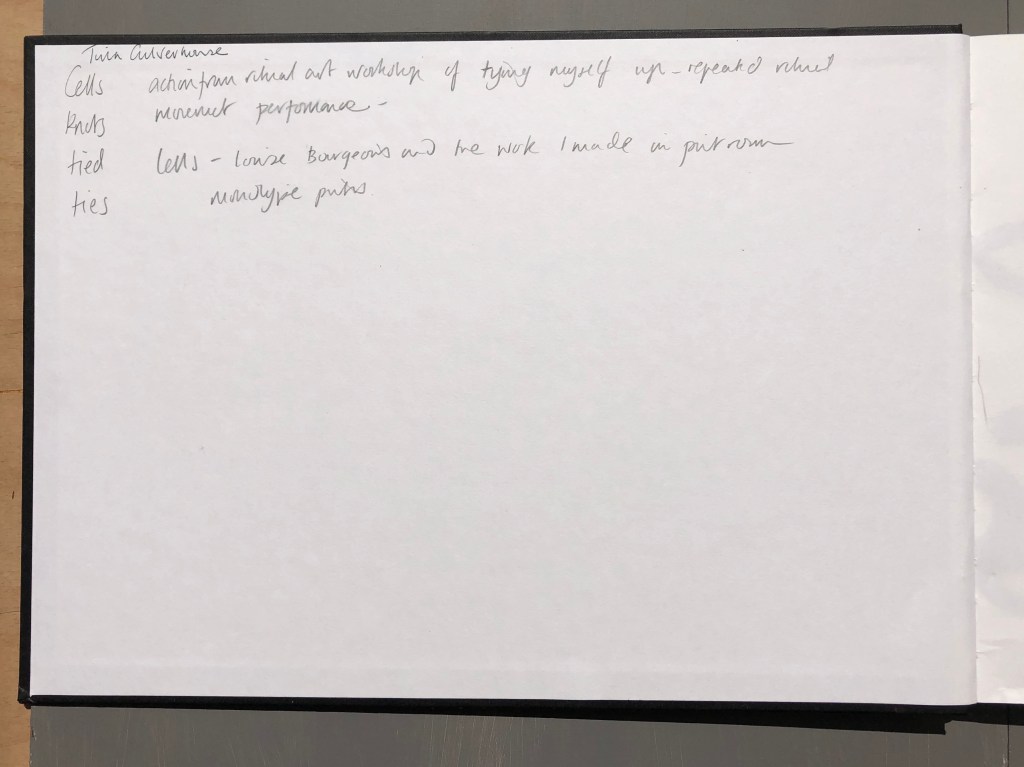 Culverhouse
Cells action from ritual art workshop of tying myself up - repeated ritual
Knots movement performance -
tied Cells - Louise Bourgeois and the work I made in print room
ties monotype prints